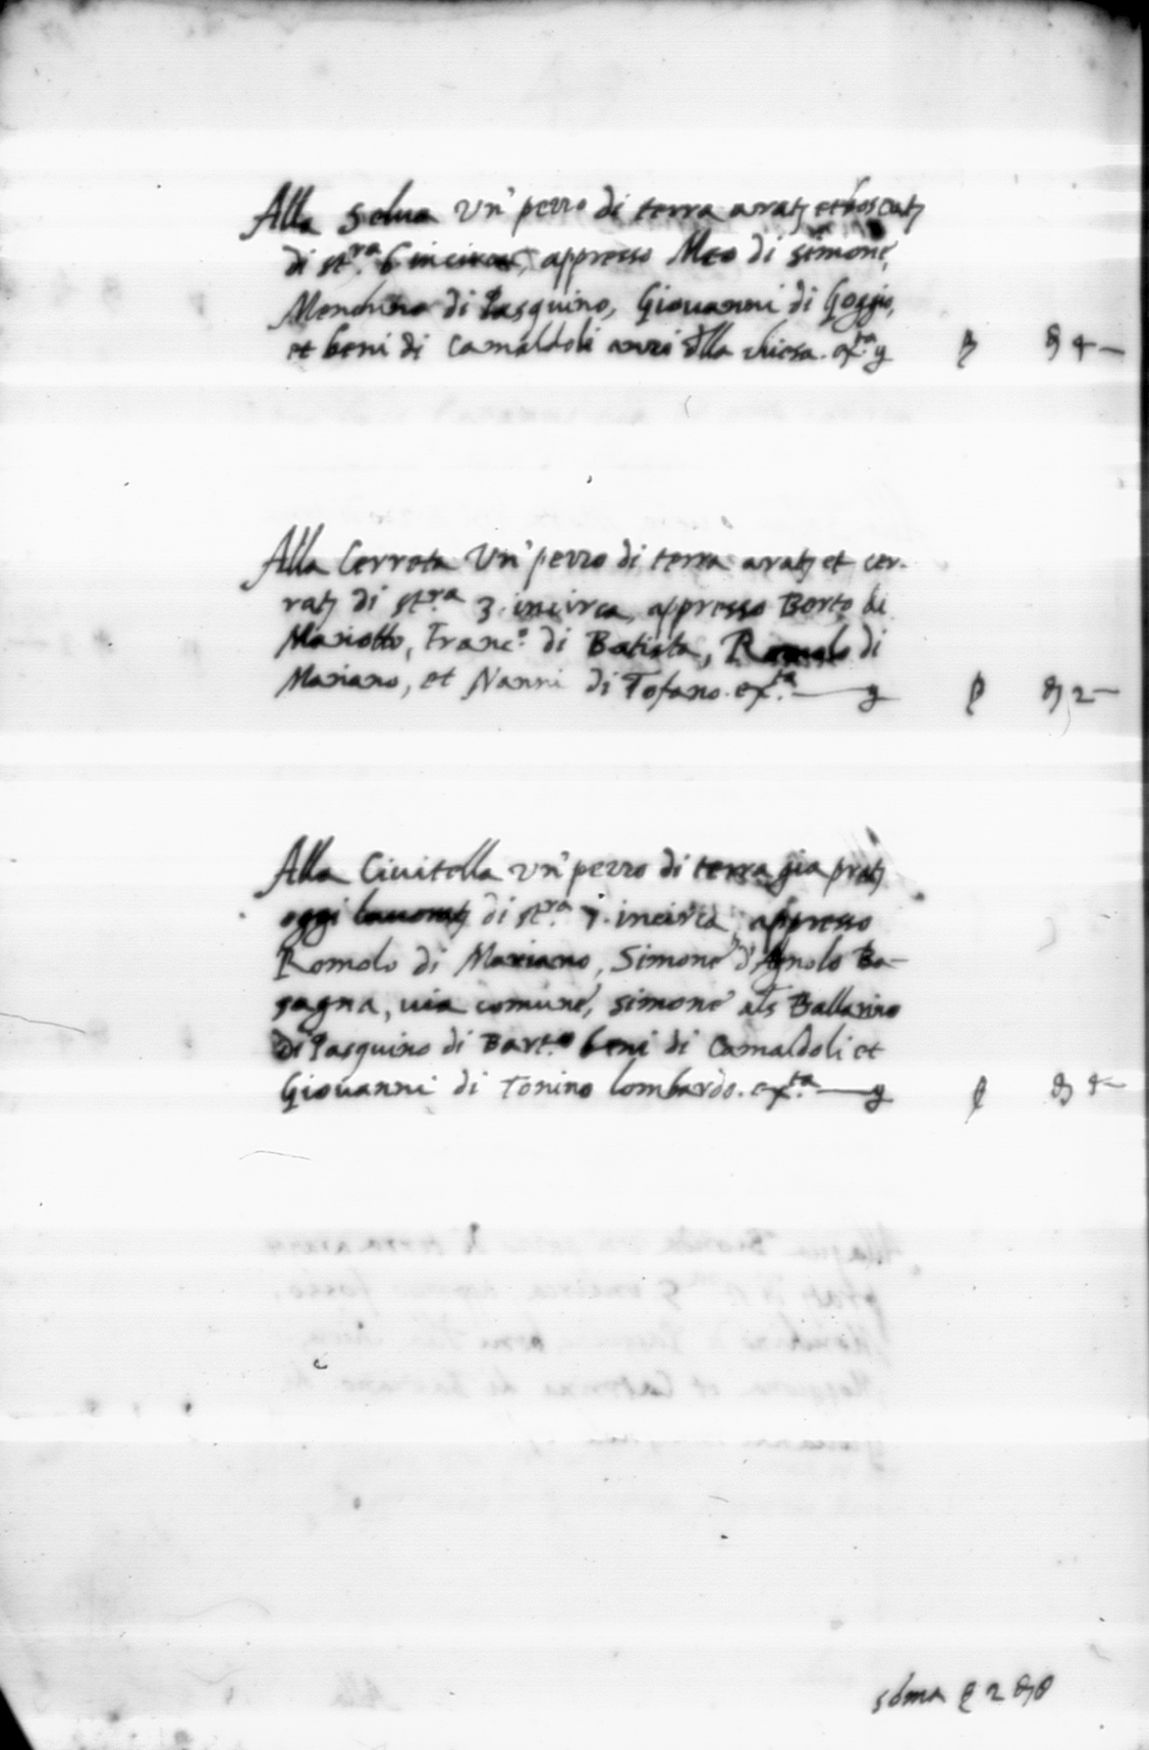 Alla Selua Un' pezzo di terra arat. et boscat.
di st.ra 6 incirca, appresso Meo di simone,
Menchino di Pasquino, Giouanni di Goggio,
et beni di Camaldoli anzi dlla chiesa. ex.ta g 4 —
Alla Cerreta Un' pezzo di terra arat. et cer-
rat. di st.ra 3. incirca, appresso Berto di
Mariotto, Franc.o di Batista, Romolo di
Mariano, et Nanni di Tofano. ex.ta — g 2 —
Alla Ciuitella un' pezzo di terra gia prat.
oggi lauorat. di st.ra incirca, appresso
Romolo di Mariano, Simone d'Agnolo Ba-
gagna, uia comune, simone als Ballarino
di Pasquino di Bart.o beni di Camaldoli et
Giouanni di Tonino lombardo. ex.ta — g
soma 2 8